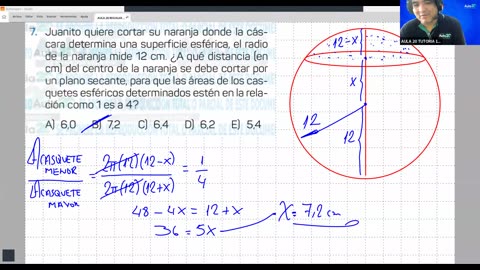 7. Juanito quiere cortar su naranja donde la cás-
cara determina una superficie esférica, el radio
de la naranja mide 12 cm. ¿A qué distancia (en
cm) del centro de la naranja se debe cortar por
un plano secante, para que las áreas de los cas-
quetes esféricos determinados estén en la rela-
ción como 1 es a 4?
A) 6,0 B) 7,2 C) 6,4 D) 6,2 E) 5,4
A CASQUETE MENOR / A CASQUETE MAYOR = 2π(12)(12-x) / 2π(12)(12+x) = 1/4
48 - 4x = 12 + x
36 = 5x
x = 7,2 cm
12-x
x
12
12
AULA 20